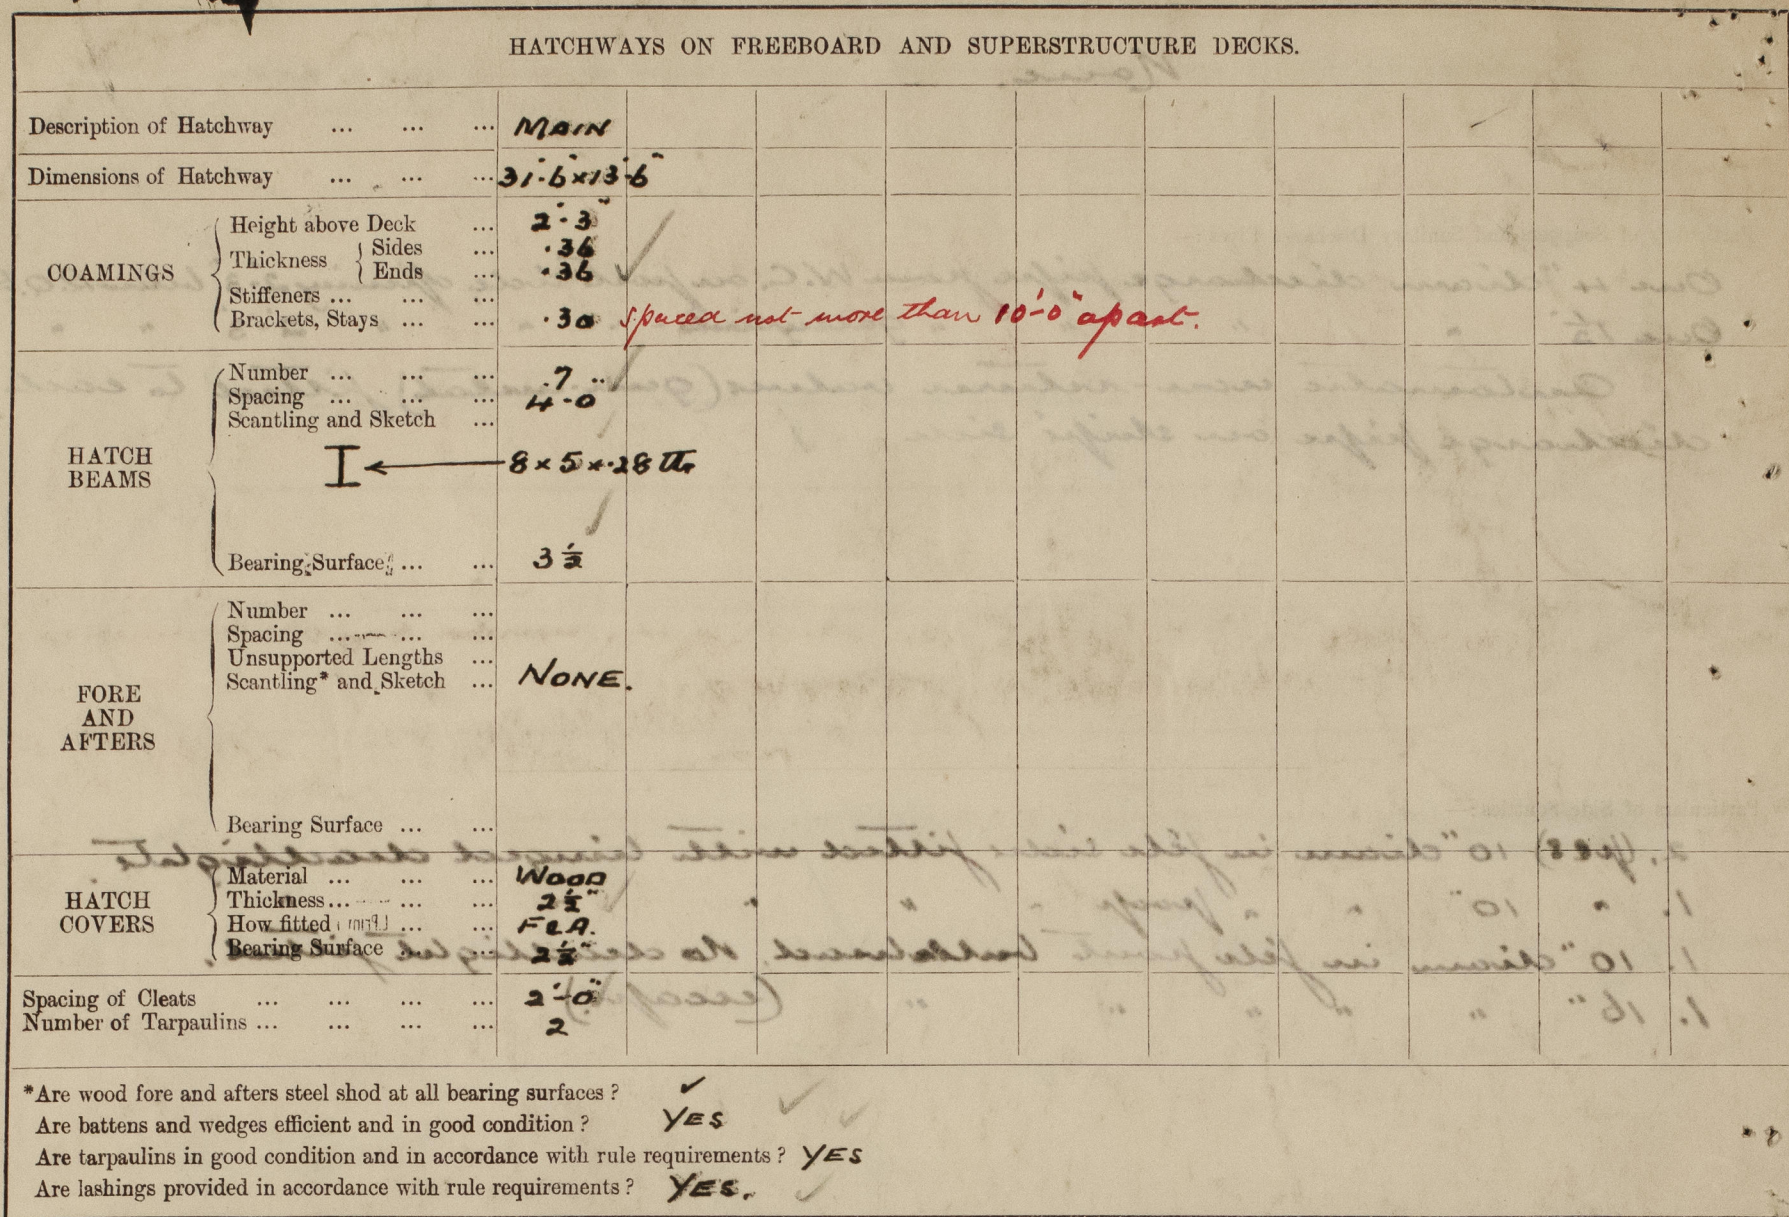 HATCHWAYS ON FREEBOARD AND SUPERSTRUCTURE DECKS.
Description of Hatchway ... ... ... MAIN
Dimensions of Hatchway ... ... ... 31'-6" x 13'-6"
COAMINGS
Height above Deck ... 2'-3"
Thickness { Sides ... .36
Ends ... .36
Stiffeners ... ... ...
Brackets, Stays ... ... .30 spaced not more than 10'-0" apart.
HATCH BEAMS
Number ... ... ... 7
Spacing ... ... ... 4'-0"
Scantling and Sketch ...
I 8 x 5 x .28
Bearing Surface ... ... 3 1/2
FORE AND AFTERS
Number ... ... ...
Spacing ... ... ...
Unsupported Lengths ...
Scantling* and Sketch ... NONE.
Bearing Surface ... ...
HATCH COVERS
Material ... ... ... WOOD
Thickness ... ... ... 2 1/2"
How fitted ... ... F & A.
Bearing Surface ... ... 2 1/2"
Spacing of Cleats ... ... ... ... 2'-0"
Number of Tarpaulins ... ... ... ... 2
*Are wood fore and afters steel shod at all bearing surfaces ? ✓
Are battens and wedges efficient and in good condition ? YES
Are tarpaulins in good condition and in accordance with rule requirements ? YES
Are lashings provided in accordance with rule requirements ? YES.